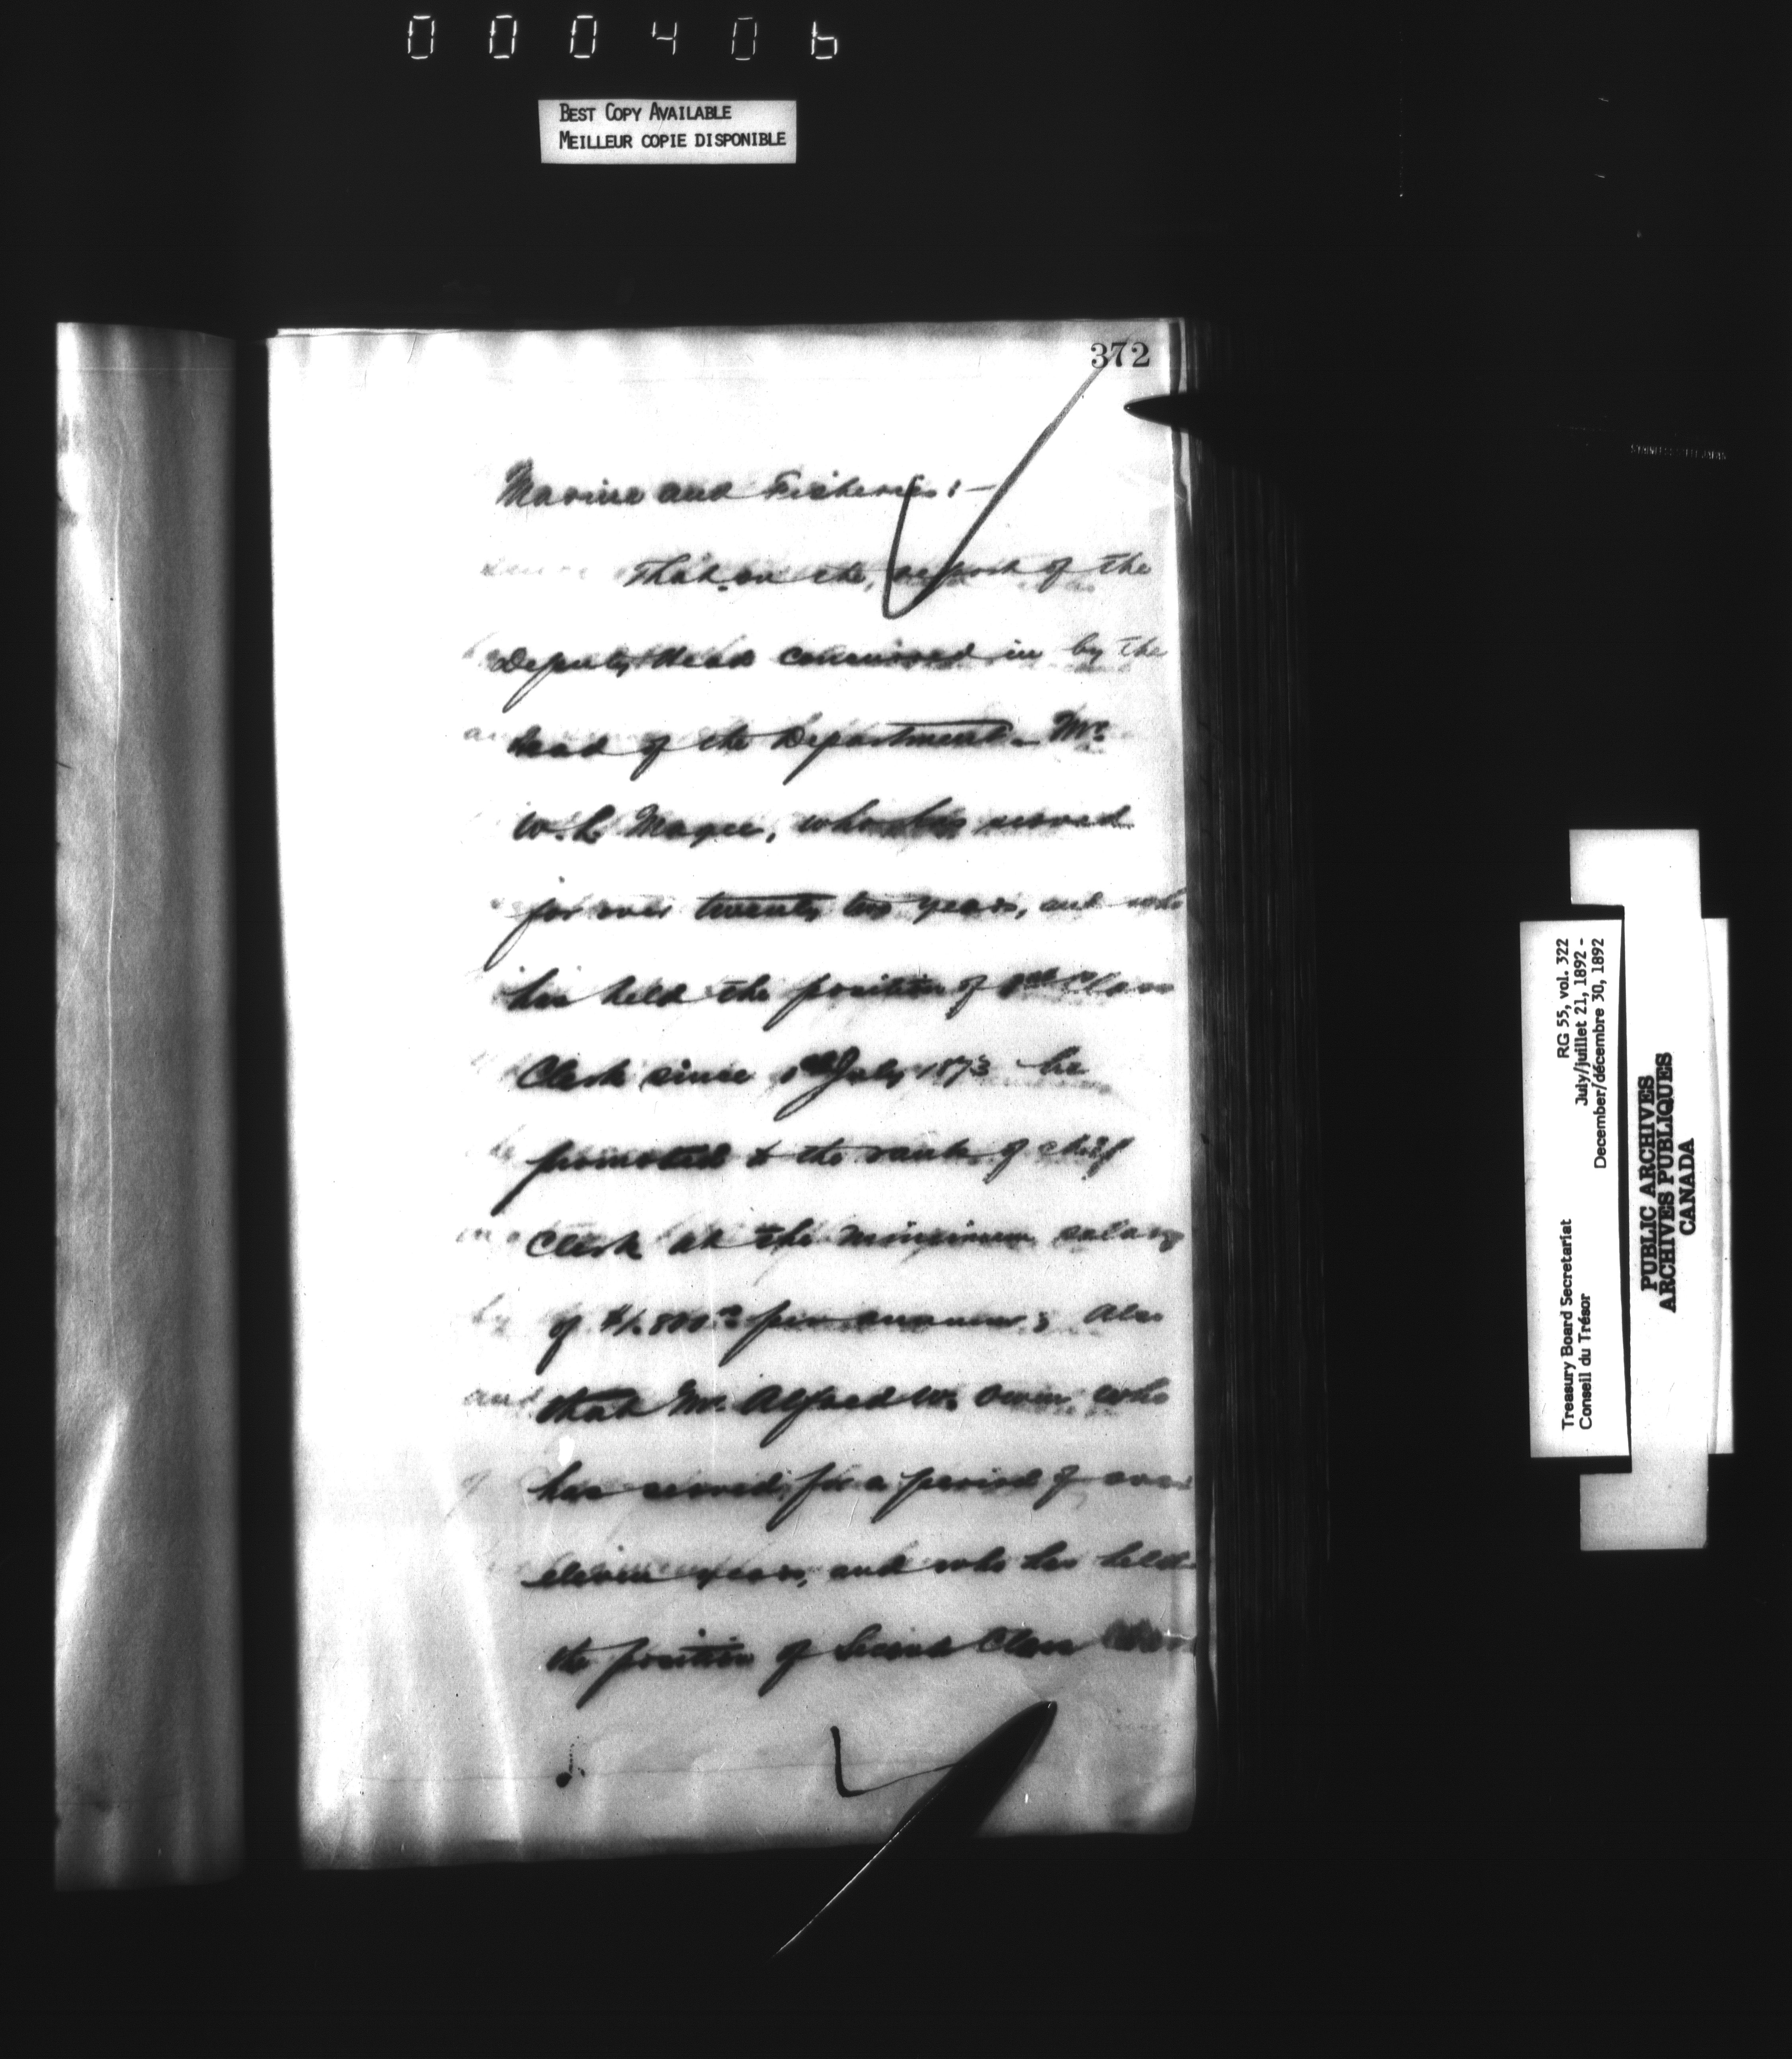 000406
BEST COPY AVAILABLE
MEILLEUR COPIE DISPONIBLE
372
Marine and Fisheries :—
That on the, report of the
Deputy Head concurred in by the
head of the Department - Mr.
W. L. Magee, who has served
for over twenty two years, and who
has held the position of 1st Class
Clerk since 1st July 1873 be
promoted to the rank of chief
Clerk at the minimum salary
of $1.800.00 per annum ; also
that Mr. Alfred W. Owen who
has served for a period of over
eleven years, and who has held
the position of Second Class
Treasury Board Secretariat RG 55, vol. 322
Conseil du Trésor July/juillet 21, 1892 -
December/décembre 30, 1892
PUBLIC ARCHIVES
ARCHIVES PUBLIQUES
CANADA